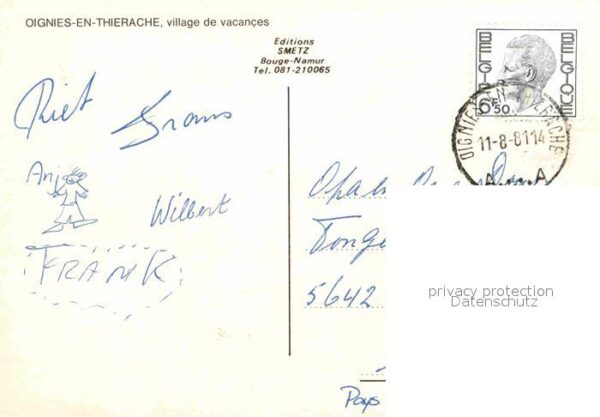 OIGNIES-EN-THIERACHE, village de vacançes
Editions
SMETZ
Bouge-Namur
Tel. 081-210065
BELGIE BELGIQUE
6F50
OIGNIES-EN-THIERACHE
11-8-8114
A A
Riet
Anja
Wilbert
FRANK
Opa
5642
Pays
privacy protection
Datenschutz